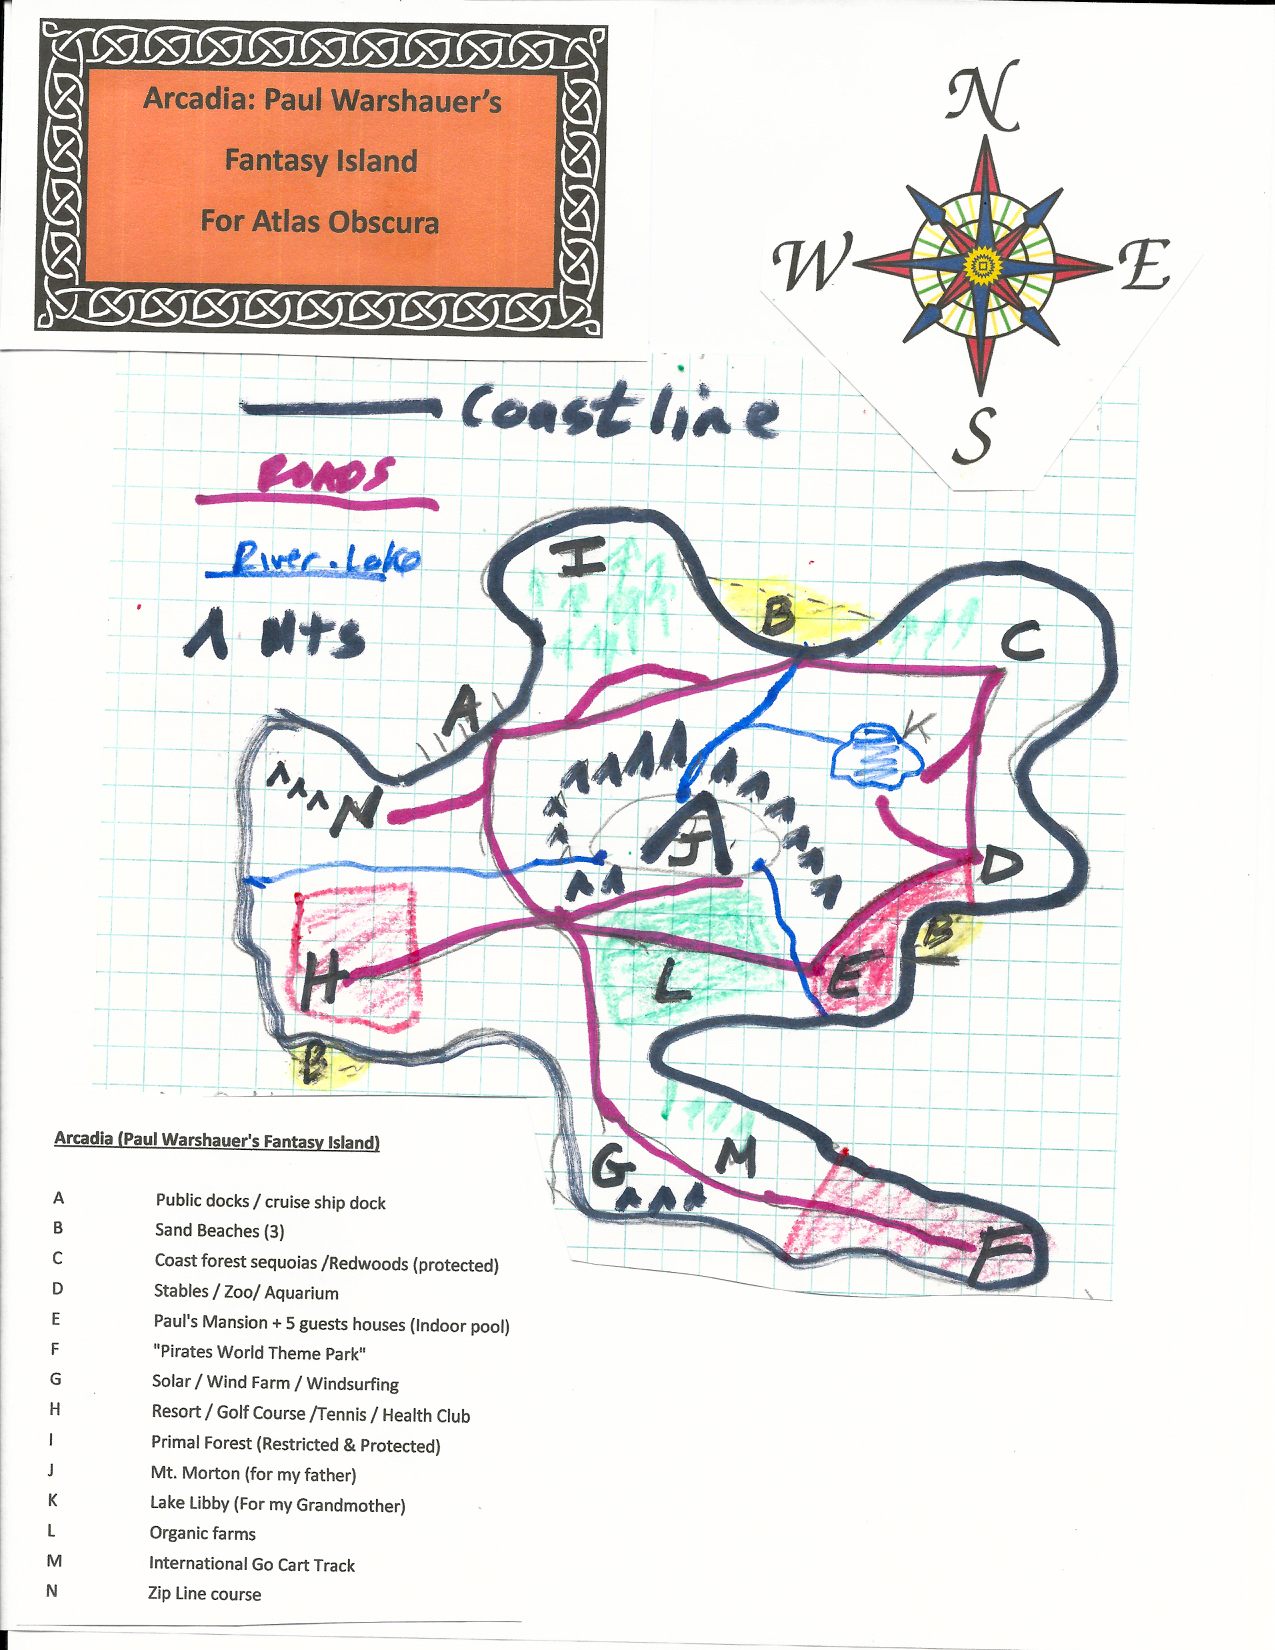 Arcadia: Paul Warshauer's
Fantasy Island
For Atlas Obscura
N
W E
S
Coastline
ROADS
River. Lake
Mts
I
B
C
A
K
N
J
D
B
H
L
E
B
G
M
F
Arcadia (Paul Warshauer's Fantasy Island)
A Public docks / cruise ship dock
B Sand Beaches (3)
C Coast forest sequoias /Redwoods (protected)
D Stables / Zoo/ Aquarium
E Paul's Mansion + 5 guests houses (Indoor pool)
F "Pirates World Theme Park"
G Solar / Wind Farm / Windsurfing
H Resort / Golf Course /Tennis / Health Club
I Primal Forest (Restricted & Protected)
J Mt. Morton (for my father)
K Lake Libby (For my Grandmother)
L Organic farms
M International Go Cart Track
N Zip Line course